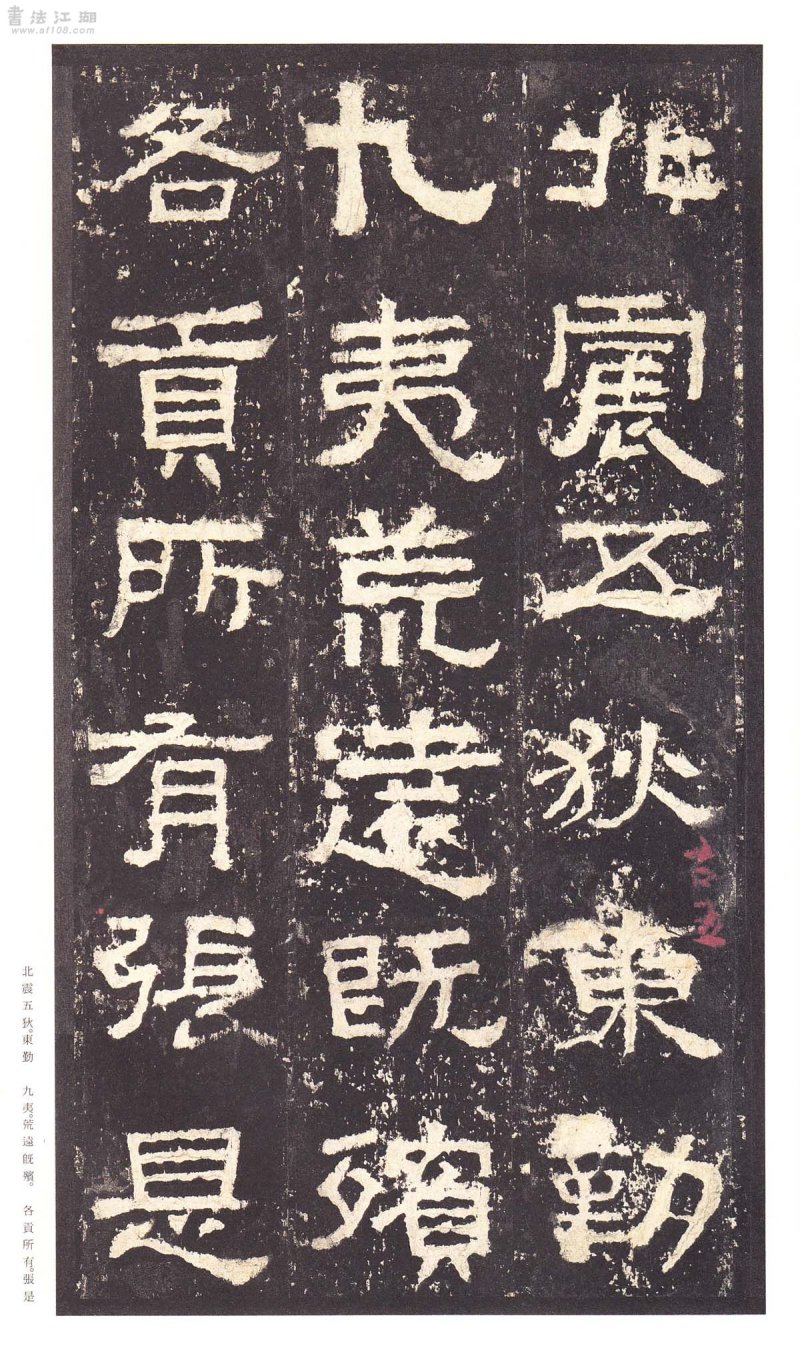 書法江湖
www.af108.com
北震五狄東勤
九夷荒遠既殯
各貢所有張是
北震五狄。東勤 九夷。荒遠既殯。 各貢所有。張是